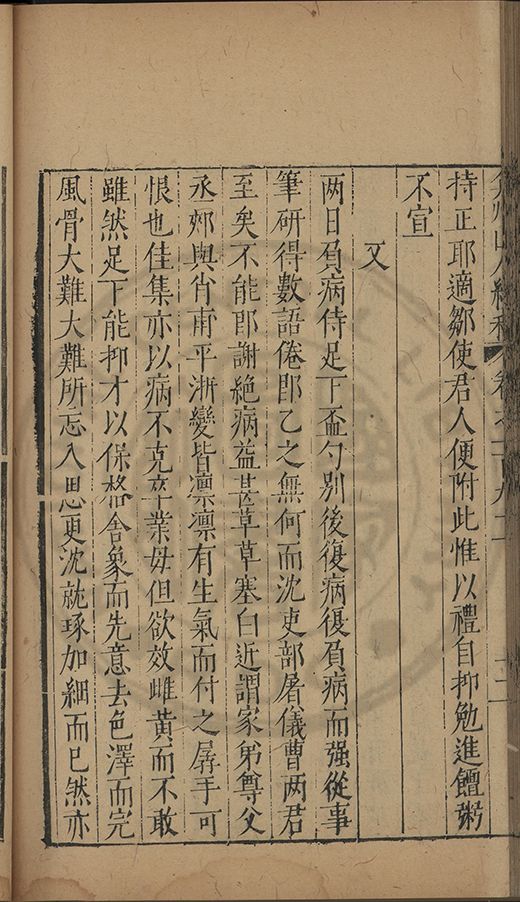 持正耶適鄒使君人便附此惟以禮自抑勉進饘粥
不宣
又
两日負病侍足下盃勺别後復病復負病而强從事
筆研得數語倦即乙之無何而沈吏部屠儀曹两君
至矣不能即謝絶病益甚草草塞白近謂家弟尊父
丞郟與肖甫平浙變皆凛凛有生氣而付之孱手可
恨也佳集亦以病不克卒業毋但欲效雌黄而不敢
雖然足下能抑才以保格舍象而先意去色澤而完
風骨大難大難所忘入思更沈就琢加細而已然亦